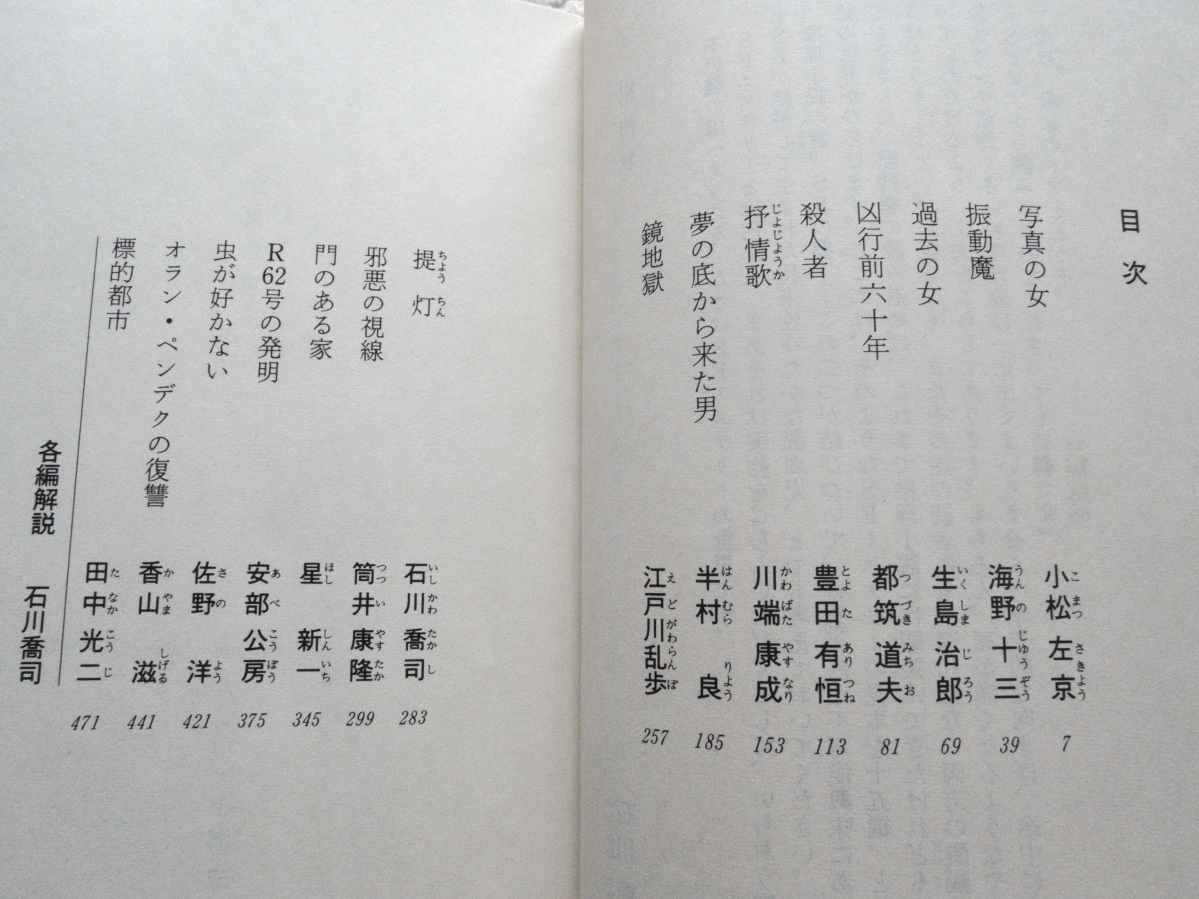 目次
写真の女　小松左京　7
振動魔　海野十三　39
過去の女　生島治郎　69
凶行前六十年　都筑道夫　81
殺人者　豊田有恒　113
抒情歌　川端康成　153
夢の底から来た男　半村良　185
鏡地獄　江戸川乱歩　257
提灯　石川喬司　283
邪悪の視線　筒井康隆　299
門のある家　星新一　345
R62号の発明　安部公房　375
虫が好かない　佐野洋　421
オラン・ペンデクの復讐　香山滋　441
標的都市　田中光二　471
各編解説　石川喬司